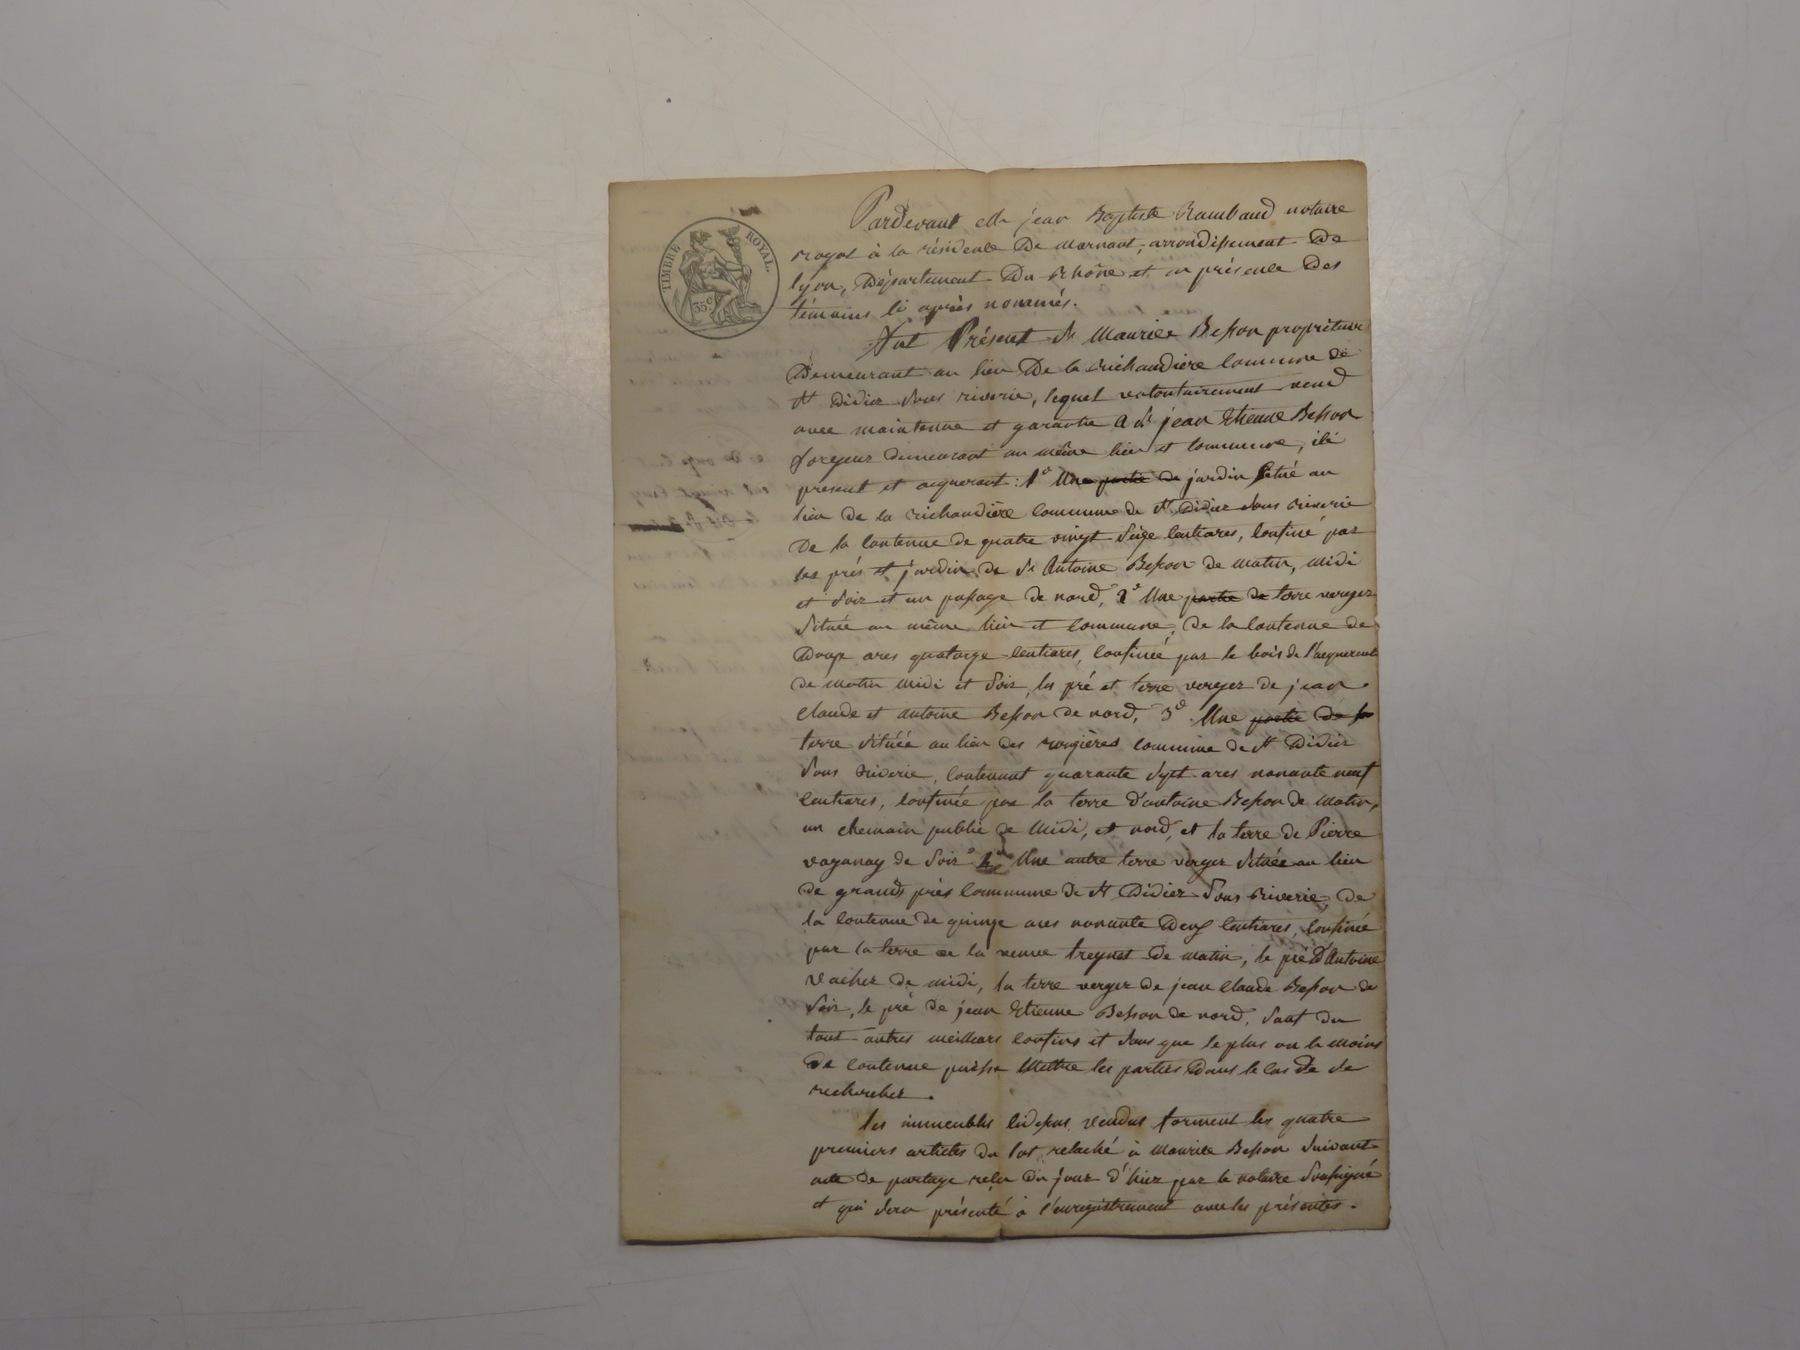 TIMBRE ROYAL.
35 c
Pardevant Me jean Baptiste Rambaud notaire
royal à la résidence De Mornant, arrondissement De
lyon, Département Du Rhône et en présence Des
témoins ci après nommés.
fut Présent Sr Maurice Besson propriétaire
Demeurant au lieu De la richaudière commune de
St Didier Sous riverie, lequel volontairement vend
avec maintenue et garantie A Sr jean Etienne Besson
forgeur demeurant au même lieu et commune, ici
present et acquerant: 1o Une partie de jardin Situé au
lieu de la richaudière commune de St Didier Sous riverie
De la contenue de quatre vingt Seize centiares, confiné par
les prés et jardin de Sr Antoine Besson de matin, midi
et Soir et un passage de nord, 2o Une partie de terre verger
Située au même lieu et commune, De la contenue de
Douze ares quatorze centiares, confinée par le bois de l'acquereur
de matin midi et Soir, les pré et terre verger de jean
Claude et antoine Besson de nord, 3o Une partie de la
terre Située au lieu des rougières commune de St Didier
Sous riverie, contenant quarante Sept ares nonante neuf
centiares, confinée par la terre d'antoine Besson de Matin,
un chemain public de Midi, et nord, et la terre de Pierre
vaganay de Soir 4o Une autre terre verger Située au lieu
de grands près commune de St Didier Sous riverie, de
la contenue de quinze ares nonante Deux centiares, confinée
par la terre de la veuve treynet de matin, le pré d'Antoine
Vacher de midi, la terre verger de jean Claude Besson de
Soir, le pré de jean Etienne Besson de nord, Sauf du
tout autres meilleurs confins et Sans que le plus ou le moins
De contenue puisse Mettre les parties Dans le cas de Se
rechercher.
les immeubles cidessus vendus forment les quatre
premiers articles du lot relaché à Maurice Besson Suivant
acte De partage reçu Du jour d'hier par le notaire Soussigné
et qui Sera présenté à l'enregistrement avec les présentes.